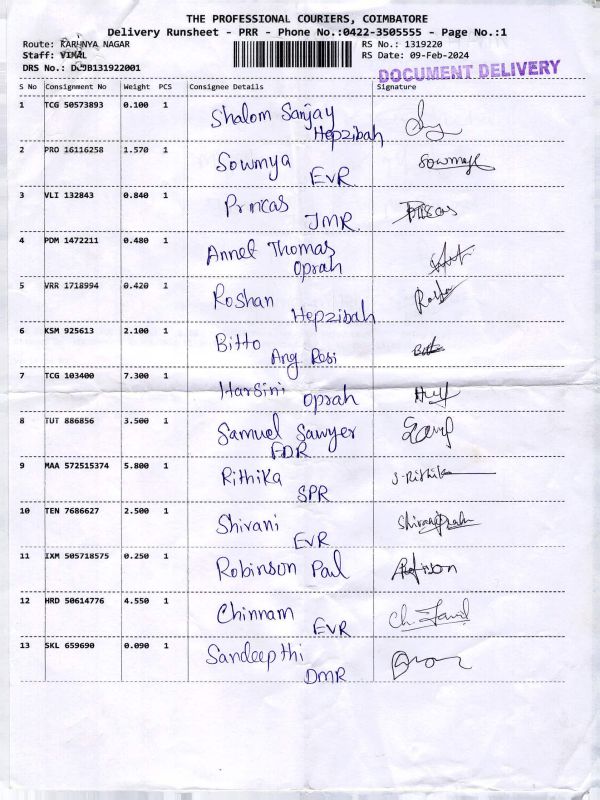 THE PROFESSIONAL COURIERS, COIMBATORE
Delivery Runsheet - PRR - Phone No.:0422-3505555 - Page No.:1
Route: KARUNYA NAGAR RS No.: 1319220
Staff: VIMAL RS Date: 09-Feb-2024
DRS No.: 131922001 DOCUMENT DELIVERY
S No Consignment No Weight PCS Consignee Details Signature
1 TCG 50573893 0.100 1 Shalom Sanjay
Hepzibah
2 PRO 16116258 1.570 1 Sowmya Sowmya
EVR
3 VLI 132843 0.840 1 Princas
JMR
4 PDM 1472211 0.480 1 Annet Thomas
Oprah
5 VRR 1718994 0.420 1 Roshan
Hepzibah
6 KSM 925613 2.100 1 Bitto
Ang Rosi
7 TCG 103400 7.300 1 Harsini
Oprah
8 TUT 886856 3.500 1 Samuel Sawyer
EDR
9 MAA 572515374 5.800 1 Rithika S-Rithik
SPR
10 TEN 7686627 2.500 1 Shivani
EVR
11 IXM 505718575 0.250 1 Robinson Paul
12 HRD 50614776 4.550 1 Chinnam
EVR
13 SKL 659690 0.090 1 Sandeepthi
DMR